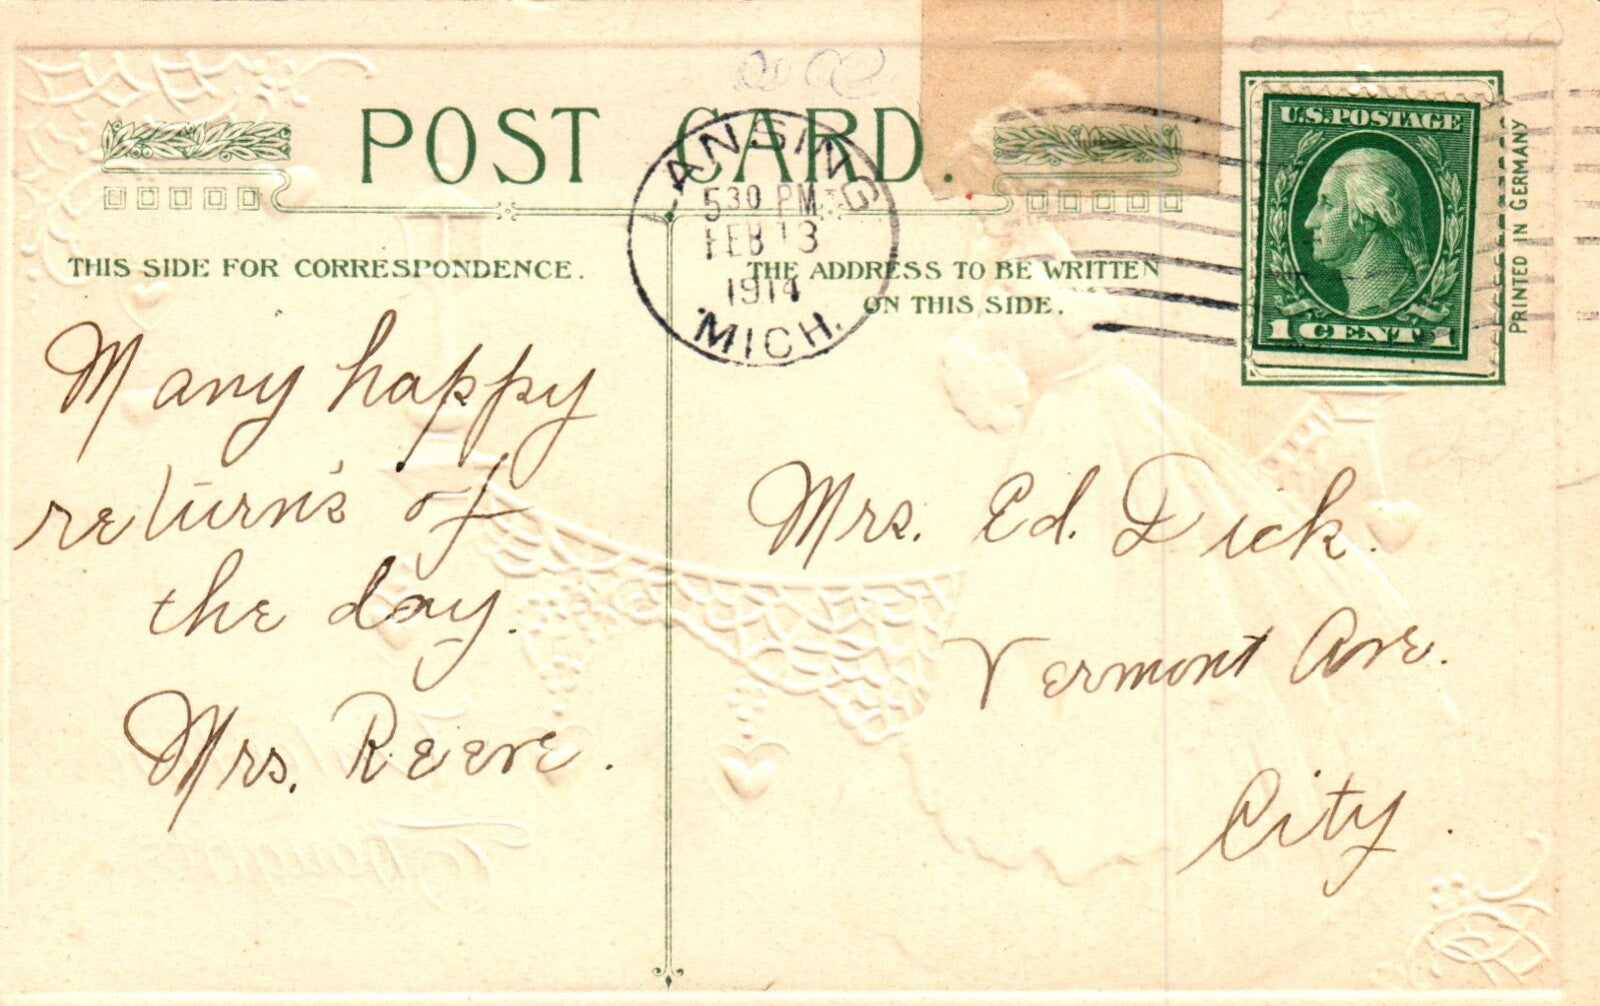 POST CARD.
LANSING
530 PM
FEB 13
1914
MICH.
U.S. POSTAGE
1 CENT 1
PRINTED IN GERMANY
THIS SIDE FOR CORRESPONDENCE.
THE ADDRESS TO BE WRITTEN
ON THIS SIDE.
Many happy
return's of
the day.
Mrs. Reeve.
Mrs. Ed. Dick.
Vermont Ave.
City.